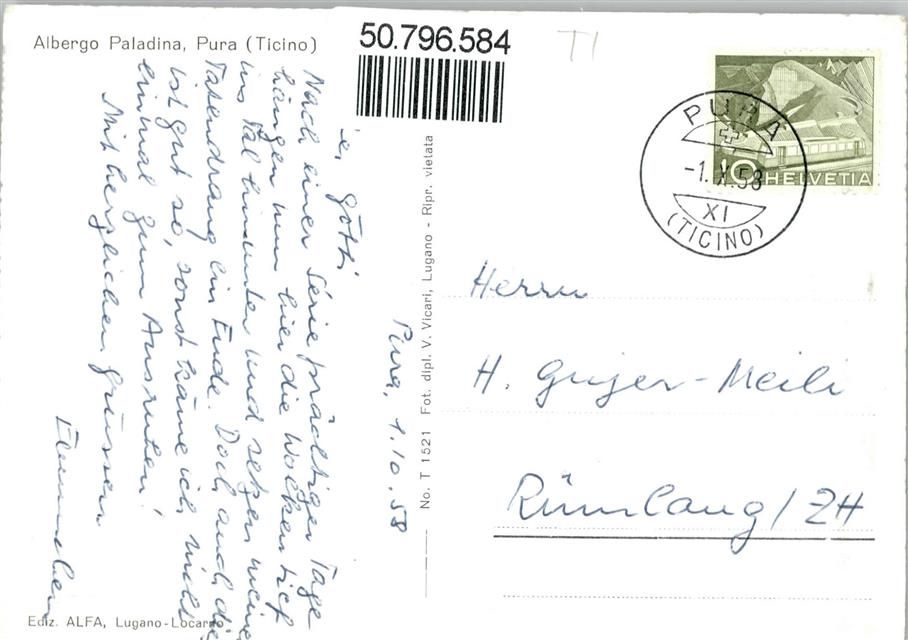 Albergo Paladina, Pura (Ticino)
50.796.584
TI
PURA
-1.X.58
XI
(TICINO)
10 HELVETIA
Pura, 1.10.58
Götti
Nach einer Serie prächtiger Tage
hängen nun hier die Wolken tief
ins Tal hinunter und setzen meinem
Tatendrang ein Ende. Doch auch dies
ist gut so, sonst käme ich nicht
einmal zum Ausruhen!
Mit herzlichen Grüssen
No. T 1521 Fot. dipl. V. Vicari, Lugano - Ripr. vietata
Herrn
H. Gujer-Meili
Rümlang/ZH
Ediz. ALFA, Lugano-Locarno